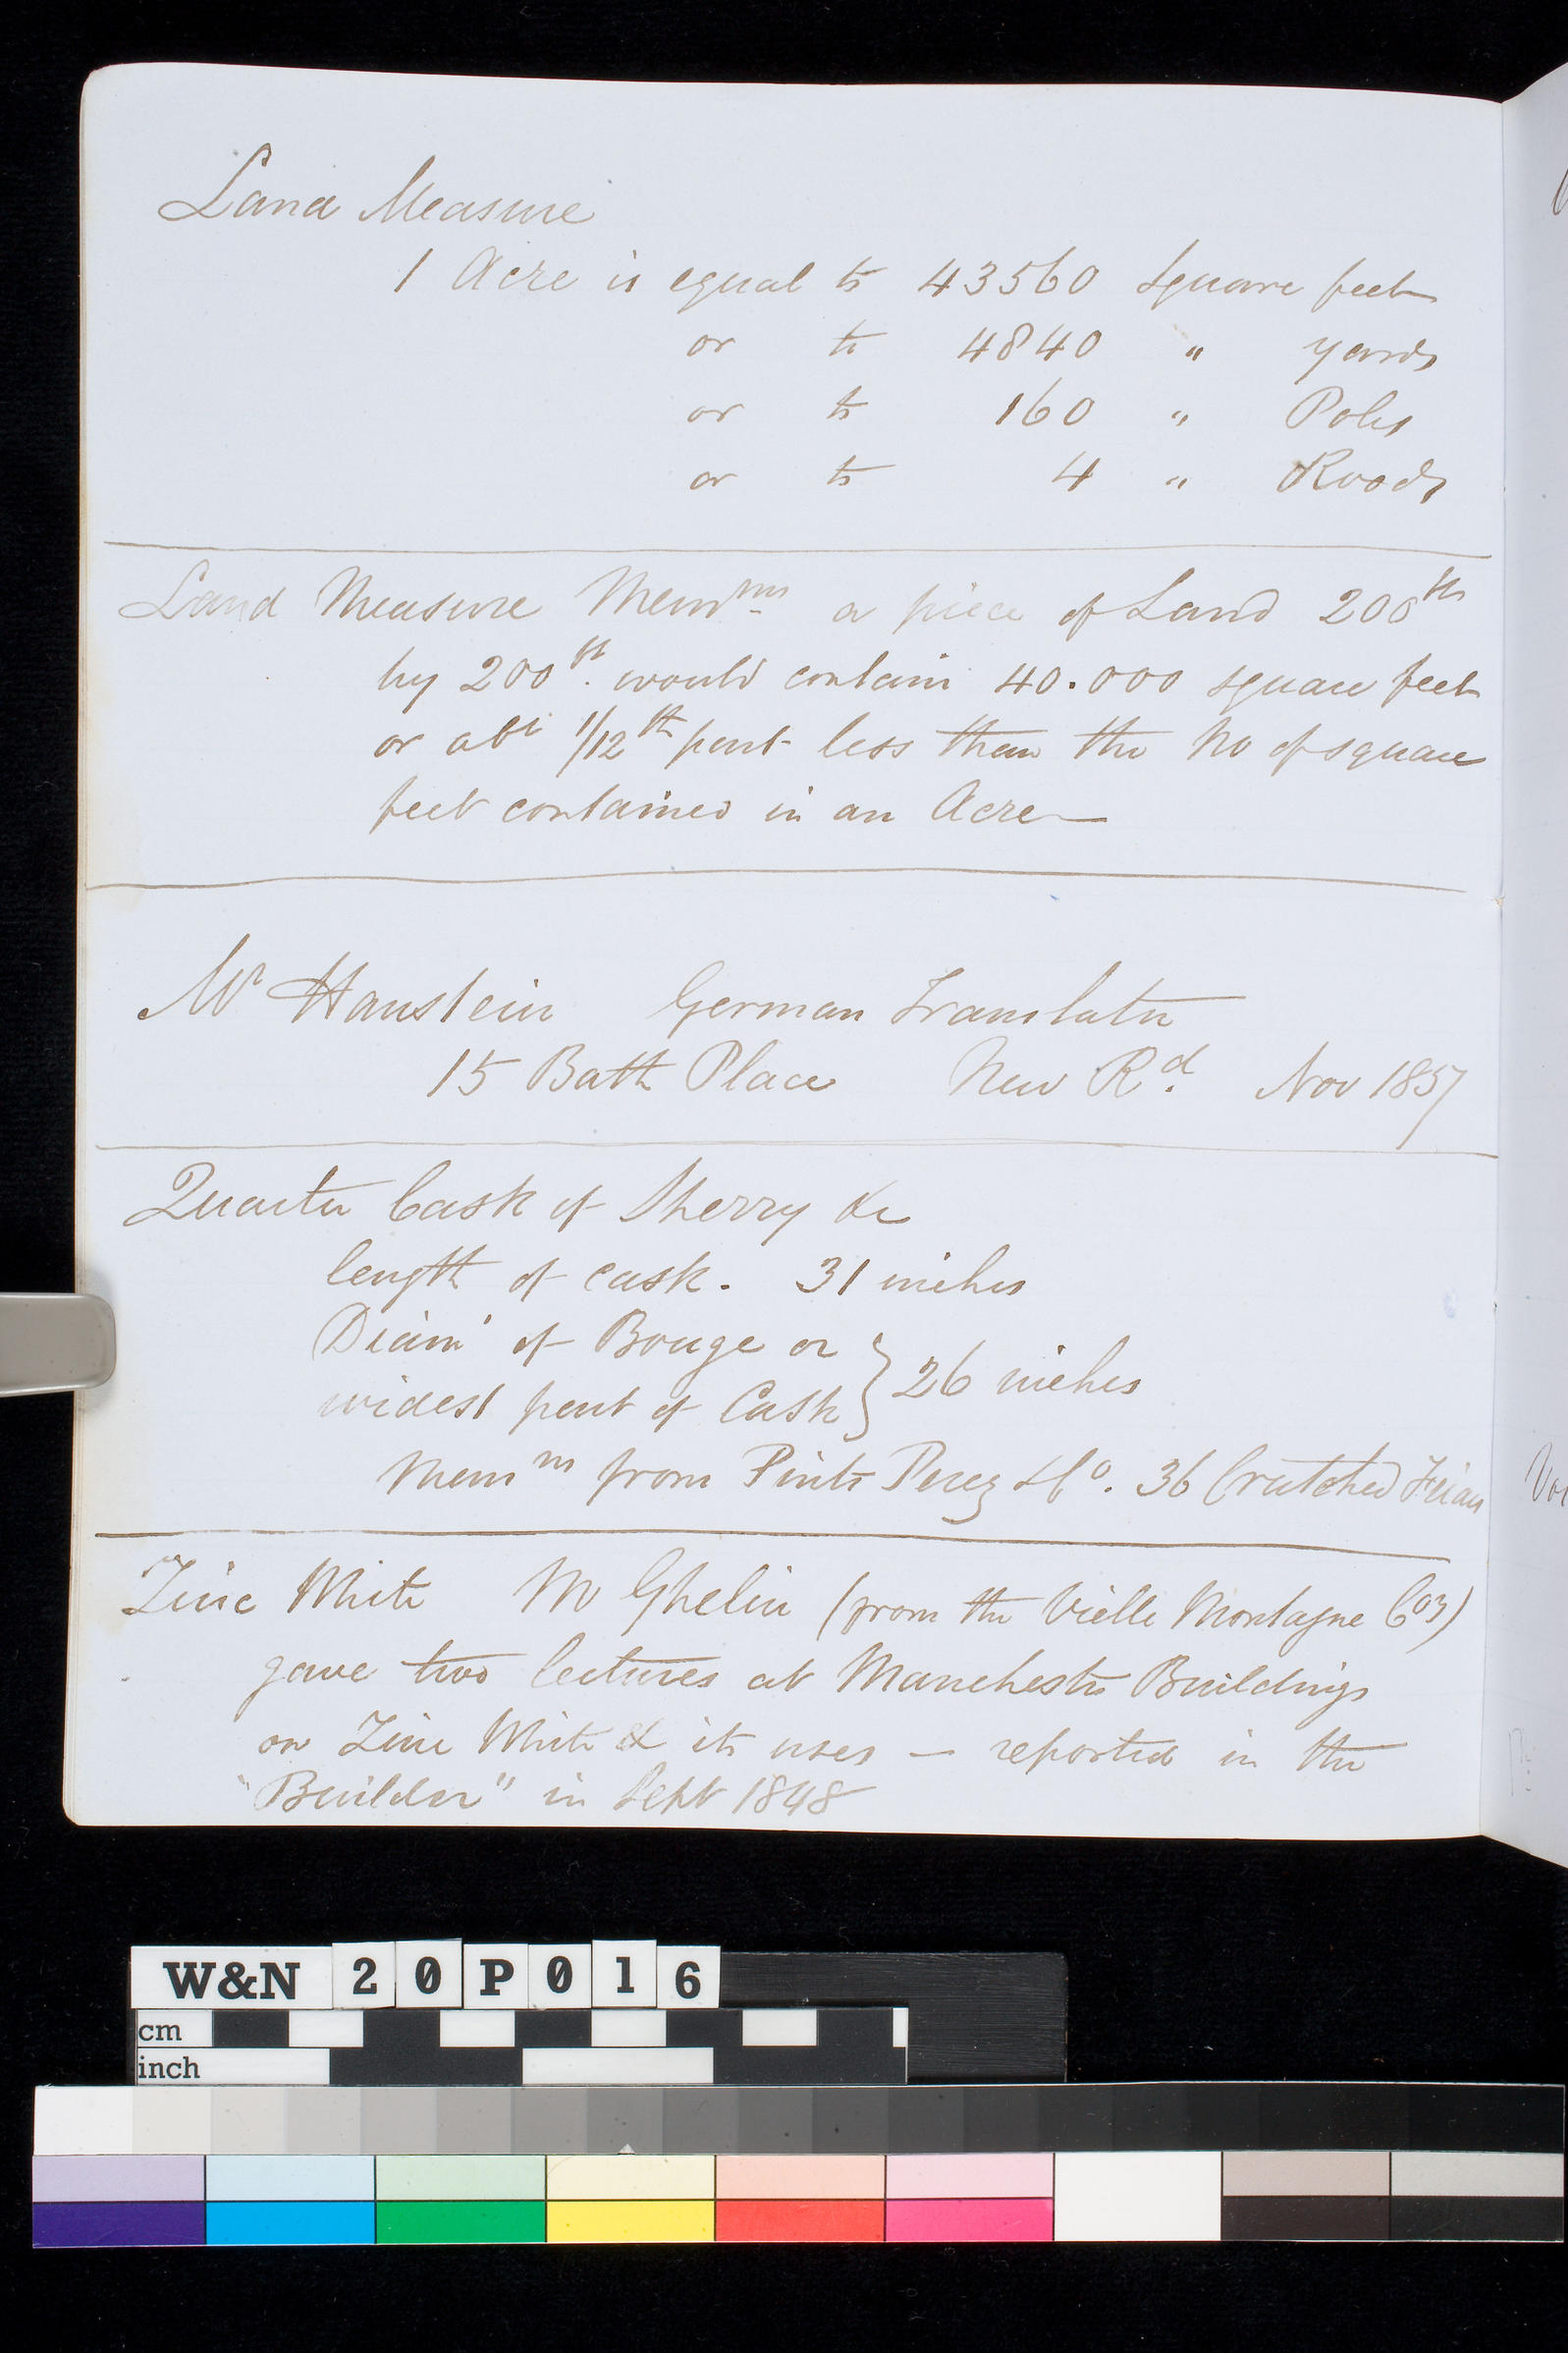 Land Measure
1 Acre is equal to 43560 Square feet
or to 4840 " yards
or to 160 " Poles
or to 4 " Roods
Land Measure Memm a piece of Land 200ft
by 200ft. would contain 40.000 square feet
or abt 1/12th part less than the No of square
feet contained in an Acre
Mr Haustein German Translator
15 Bath Place New Rd. Nov 1857
Quarter Cask of Sherry &c
length of cask. 31 inches
Diamr of Bouge or
widest part of Cask } 26 inches
Memm from Pinto Perez & Co. 36 Crutched Friars
Zinc White Mr Ghelin (from the Vielle Montagne Coy)
gave two lectures at Manchester Buildings
on Zinc White & its uses — reported in the
"Builder" in Sept 1848
W&N 20P016
cm
inch